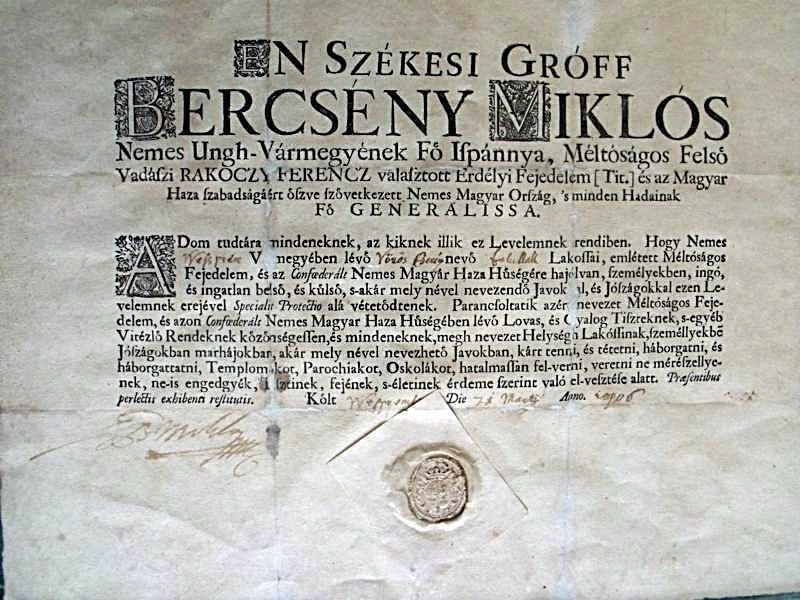 EN SZÉKESI GRÓFF
BERCSÉNY MIKLÓS
Nemes Ungh-Vármegyének Fő Iſpánnya, Méltóságos Felső
Vadászi RÁKÓCZY FERENCZ választott Erdélyi Fejedelem [Tit.] és az Magyar
Haza ſzabadságáért öſzve ſzövetkezett Nemes Magyar Orſzág, 's minden Hadainak
Fő GENERALISSA.
ADom tudtára mindeneknek, az kiknek illik ez Levelemnek rendiben. Hogy Nemes
V negyében lévő Vörös nevő Lakoſſai, emlétett Méltóságos
Fejedelem, és az Confœderált Nemes Magyar Haza Hűségére hajolván, ſzemélyekben, ingó,
és ingatlan belső, és külső, s-akár mely nével nevezendő Javok l, és Jóſzágokkal ezen Le-
velemnek erejével Specialis Protectio alá vétetődtenek. Parancſoltatik azért nevezet Méltóságos Feje-
delem, és azon Confœderált Nemes Magyar Haza Hűségében lévő Lovas, és Gyalog Tiſztreknek, s-egyéb
Vitézlő Rendeknek közönségeſſen, és mindeneknek, megh nevezet Helységh Lakóſſinak, ſzeméllyekbē
Jóſzágokban marhájokbar, akár mely nével nevezhető Javokban, kárt tenni, és tétetni, háborgatni, és
háborgattatni, Templomokot, Parochiakot, Oskolákot, hatalmaſſan fel-verni, veretni ne mérészellye-
nek, ne-is engedgyék, fejének, s-életinek érdeme ſzerint való el-veſztése alatt. Præsentibus
perlectis exhibenti reſtitutis. Költ Die Anno.